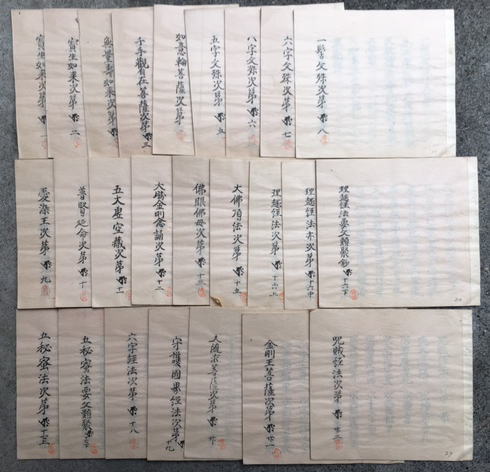 寳生如来次第 一
寳生如来次第 二
無量壽如来次第
千手觀自在菩薩次第 三
如意輪菩薩次第
五字文殊次第 五
八字文殊次第 六
六字文殊次第 七
一髻文殊次第 八
愛染王次第 九
普賢延命次第 十
五大虚空藏次第 十一
大勝金剛念誦次第 十二
佛眼佛母次第 十三
大佛頂法次第 十五
理趣經法次第 十六上
理趣經法次第 十六中
理趣經法要文類聚鈔 十六下
五秘密法次第 十五
五秘密法要文類聚
六字經法次第 十八
守護國界經法次第 十九
次第 廿
金剛王菩薩次第 廿一
呪賊經法次第 廿二
27